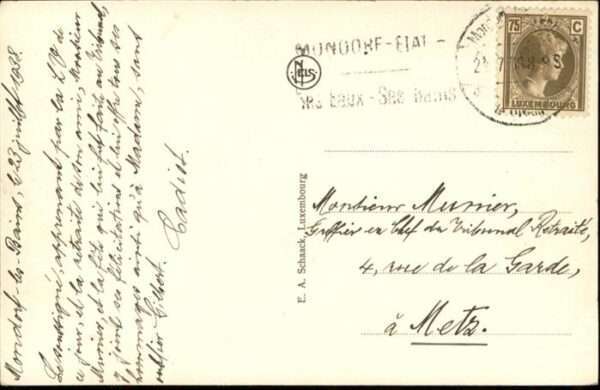 Mondorf-les Bains le 23 juillet 1928.
Le soussigné, apprenant par la L. de
ce jour, et la retraite de son ami, Monsieur
Munier, et la fête qui lui fut faite au Tribunal,
y joint ses félicitations et lui offre tous ses
hommages ainsi qu'à Madame, sans
oublier Gilbert.
Cadiot.
MONDORF-ETAT-
Ses Eaux - Ses Bains
75 C
LUXEMBOURG
E. A. Schaack, Luxembourg
Monsieur Munier,
Greffier en Chef du Tribunal Retraité,
4, rue de la Garde,
à Metz.